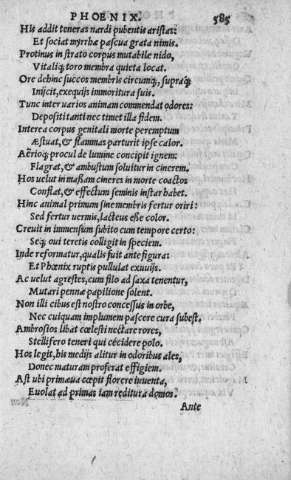 PHOENIX. 585
His addit teneras nardi pubentis aristas:
Et sociat myrrhæ pascua grata nimis.
Protinus in strato corpus mutabile nido,
Vitaliq; toro membra quieta locat.
Ore dehinc succos membris circumq;, supraq;
Iniicit, exequijs immoritura suis.
Tunc inter uarios animam commendat odores:
Depositi tanti nec timet illa fidem.
Interea corpus genitali morte peremptum
Æstuat, & flammas parturit ipse calor.
Aëríoq; procul de lumine concipit ignem:
Flagrat, & ambustum soluitur in cinerem.
Hos uelut in massam cineres in morte coactos
Conflat, & effectum seminis instar habet.
Hinc animal primum sine membris fertur oriri:
Sed fertur uermis, lacteus esse color.
Creuit in immensum subito cum tempore certo:
Seq; oui teretis colligit in speciem.
Inde reformatur, qualis fuit ante figura:
Et Phœnix ruptis pullulat exuuijs.
Ac uelut agrestes, cum filo ad saxa tenentur,
Mutari penna papilione solent.
Non illi cibus est nostro concessus in orbe,
Nec cuiquam implumem pascere cura subest,
Ambrosios libat cœlesti nectare rores,
Stellifero teneri qui cécidere polo.
Hos legit, his medijs alitur in odoribus ales,
Donec maturam proferat effigiem.
Ast ubi primæua cœpit florere iuuenta,
Euolat ad primas iam reditura domos.
Ante